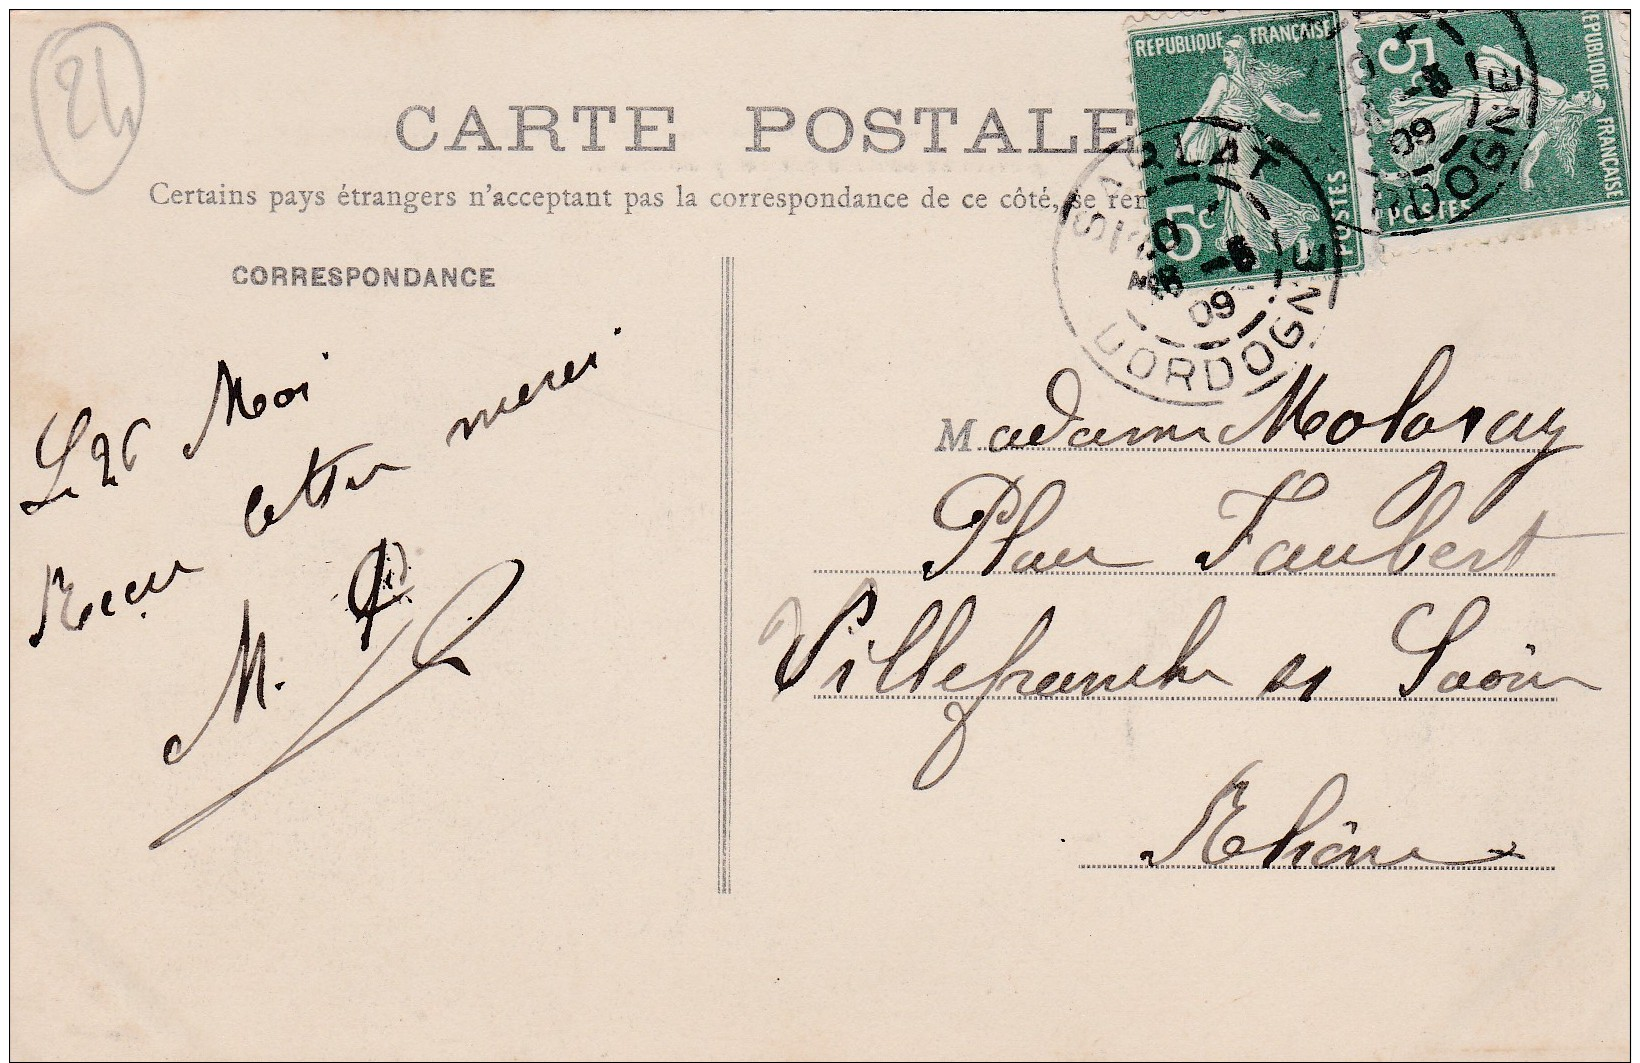 24
CARTE POSTALE
REPUBLIQUE FRANÇAISE
5c
POSTES
REPUBLIQUE FRANÇAISE
5c
POSTES
SARLAT
-8
09
DORDOGNE
-8
09
DORDOGNE
Certains pays étrangers n'acceptant pas la correspondance de ce côté, se ren
CORRESPONDANCE
Le 26 Mai
Reçu lettre merci
M.
Madame Molaray
Place Faubert
Villefranche s/ Saône
Rhône